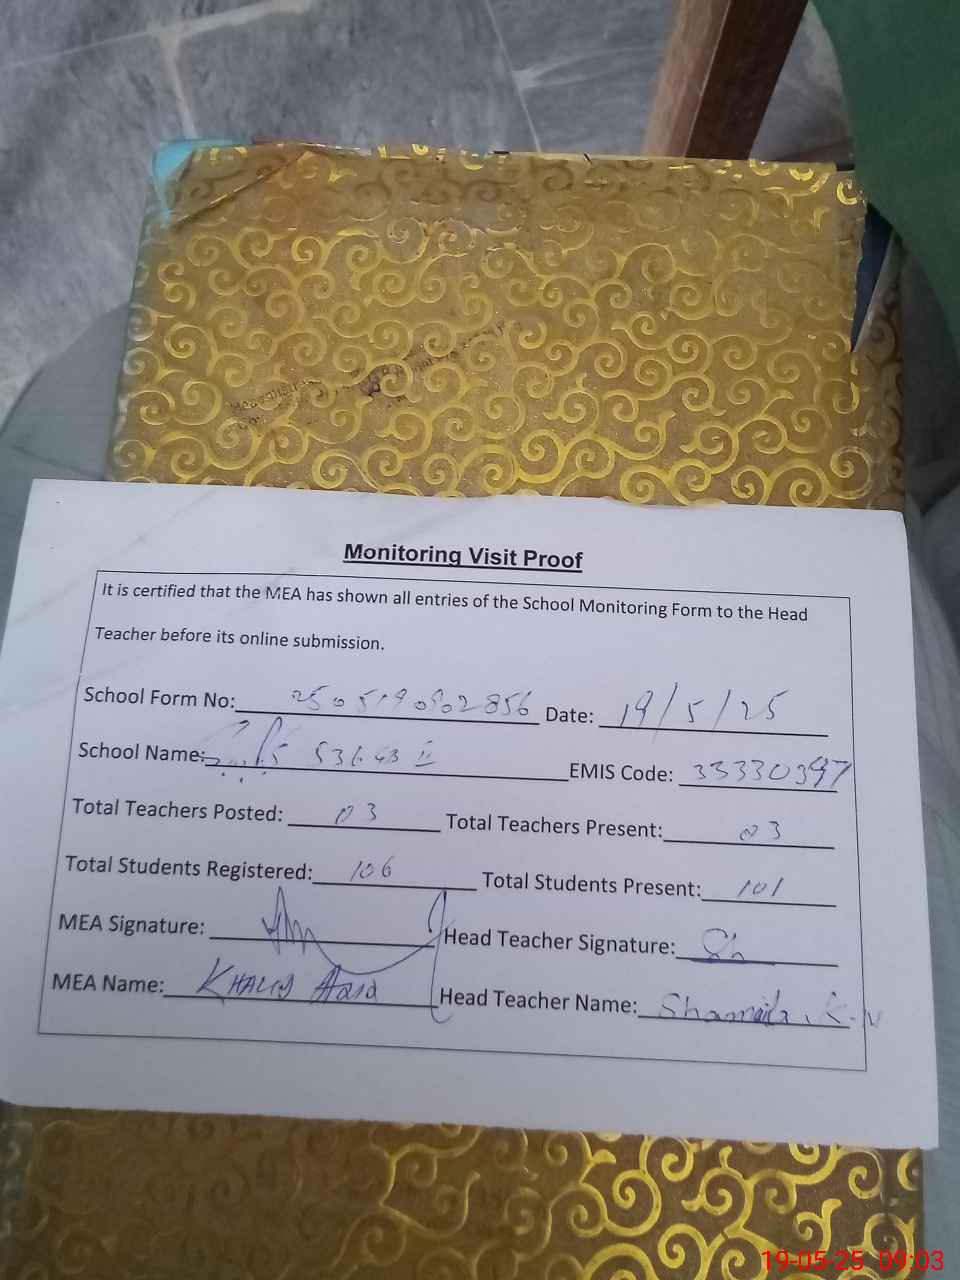 Monitoring Visit Proof
It is certified that the MEA has shown all entries of the School Monitoring Form to the Head
Teacher before its online submission.
School Form No: 2505190902856 Date: 19/5/25
School Name: 536 GB II EMIS Code: 33330397
Total Teachers Posted: 03 Total Teachers Present: 03
Total Students Registered: 106 Total Students Present: 101
MEA Signature: Head Teacher Signature: Sh
MEA Name: KHALID Head Teacher Name: Shamaila K.N
19-05-25 09:03